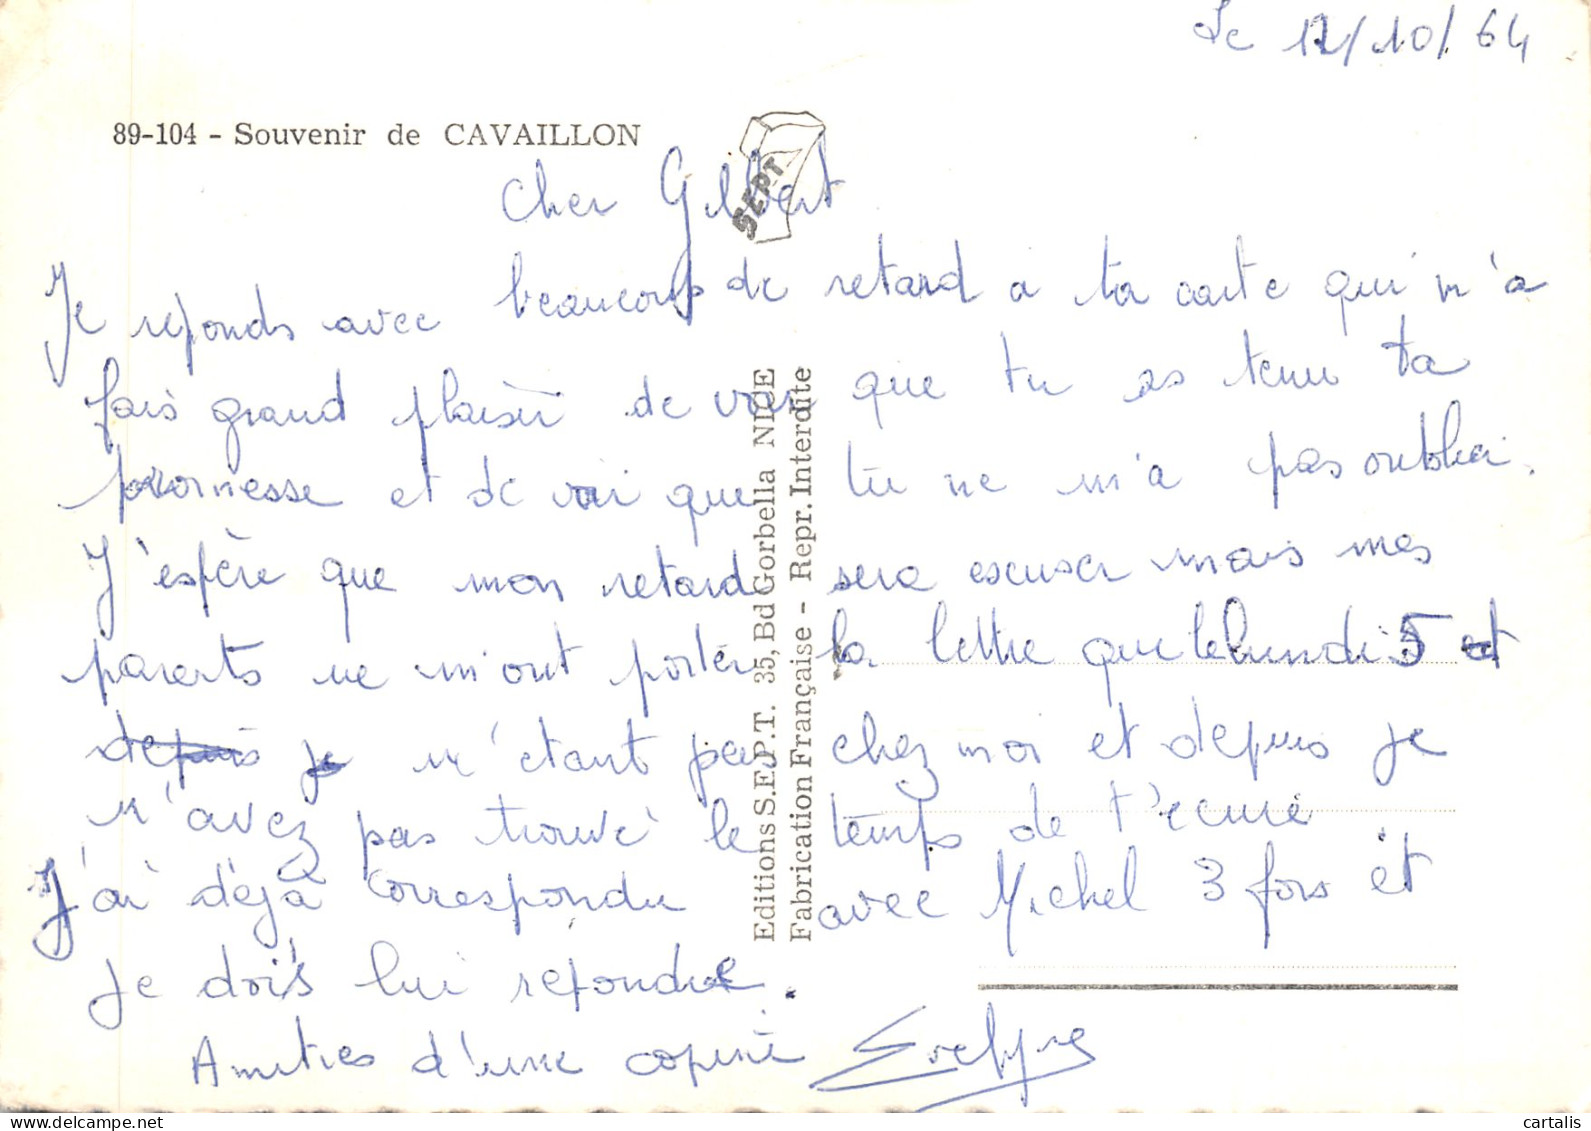 Le 12/10/64
89-104 - Souvenir de CAVAILLON
SEPT
Cher Gilbert
Je reponds avec beaucoup de retard a ta carte qui m'a
fais grand plaisir de voir que tu as tenu ta
promesse et de voir que tu ne m'a pas oublier.
J'espère que mon retard sera escuser mais mes
parents ne m'ont porter la lettre que le lundi 5 et
depuis je n'étant pas chez moi et depuis je
n'avez pas trouvé le temps de t'ecrire
J'ai dejà correspondu avec Michel 3 fois et
je dois lui repondre.
Amitiés d'une copine Evelyne
Editions S.E.P.T. 35, Bd Gorbella NICE
Fabrication Française - Repr. Interdite
cartalis